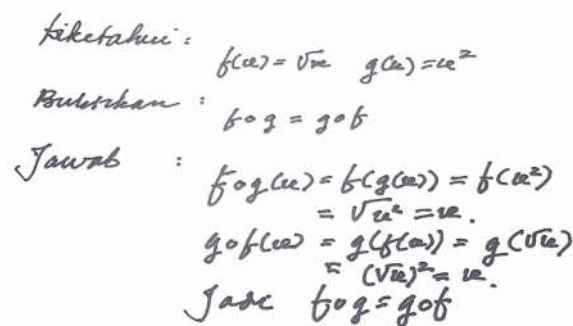 Diketahui :
f(x) = √x g(x) = x²
Buktikan :
f∘g = g∘f
Jawab :
f∘g(x) = f(g(x)) = f(x²)
= √x² = x.
g∘f(x) = g(f(x)) = g(√x)
= (√x)² = x.
Jadi f∘g = g∘f